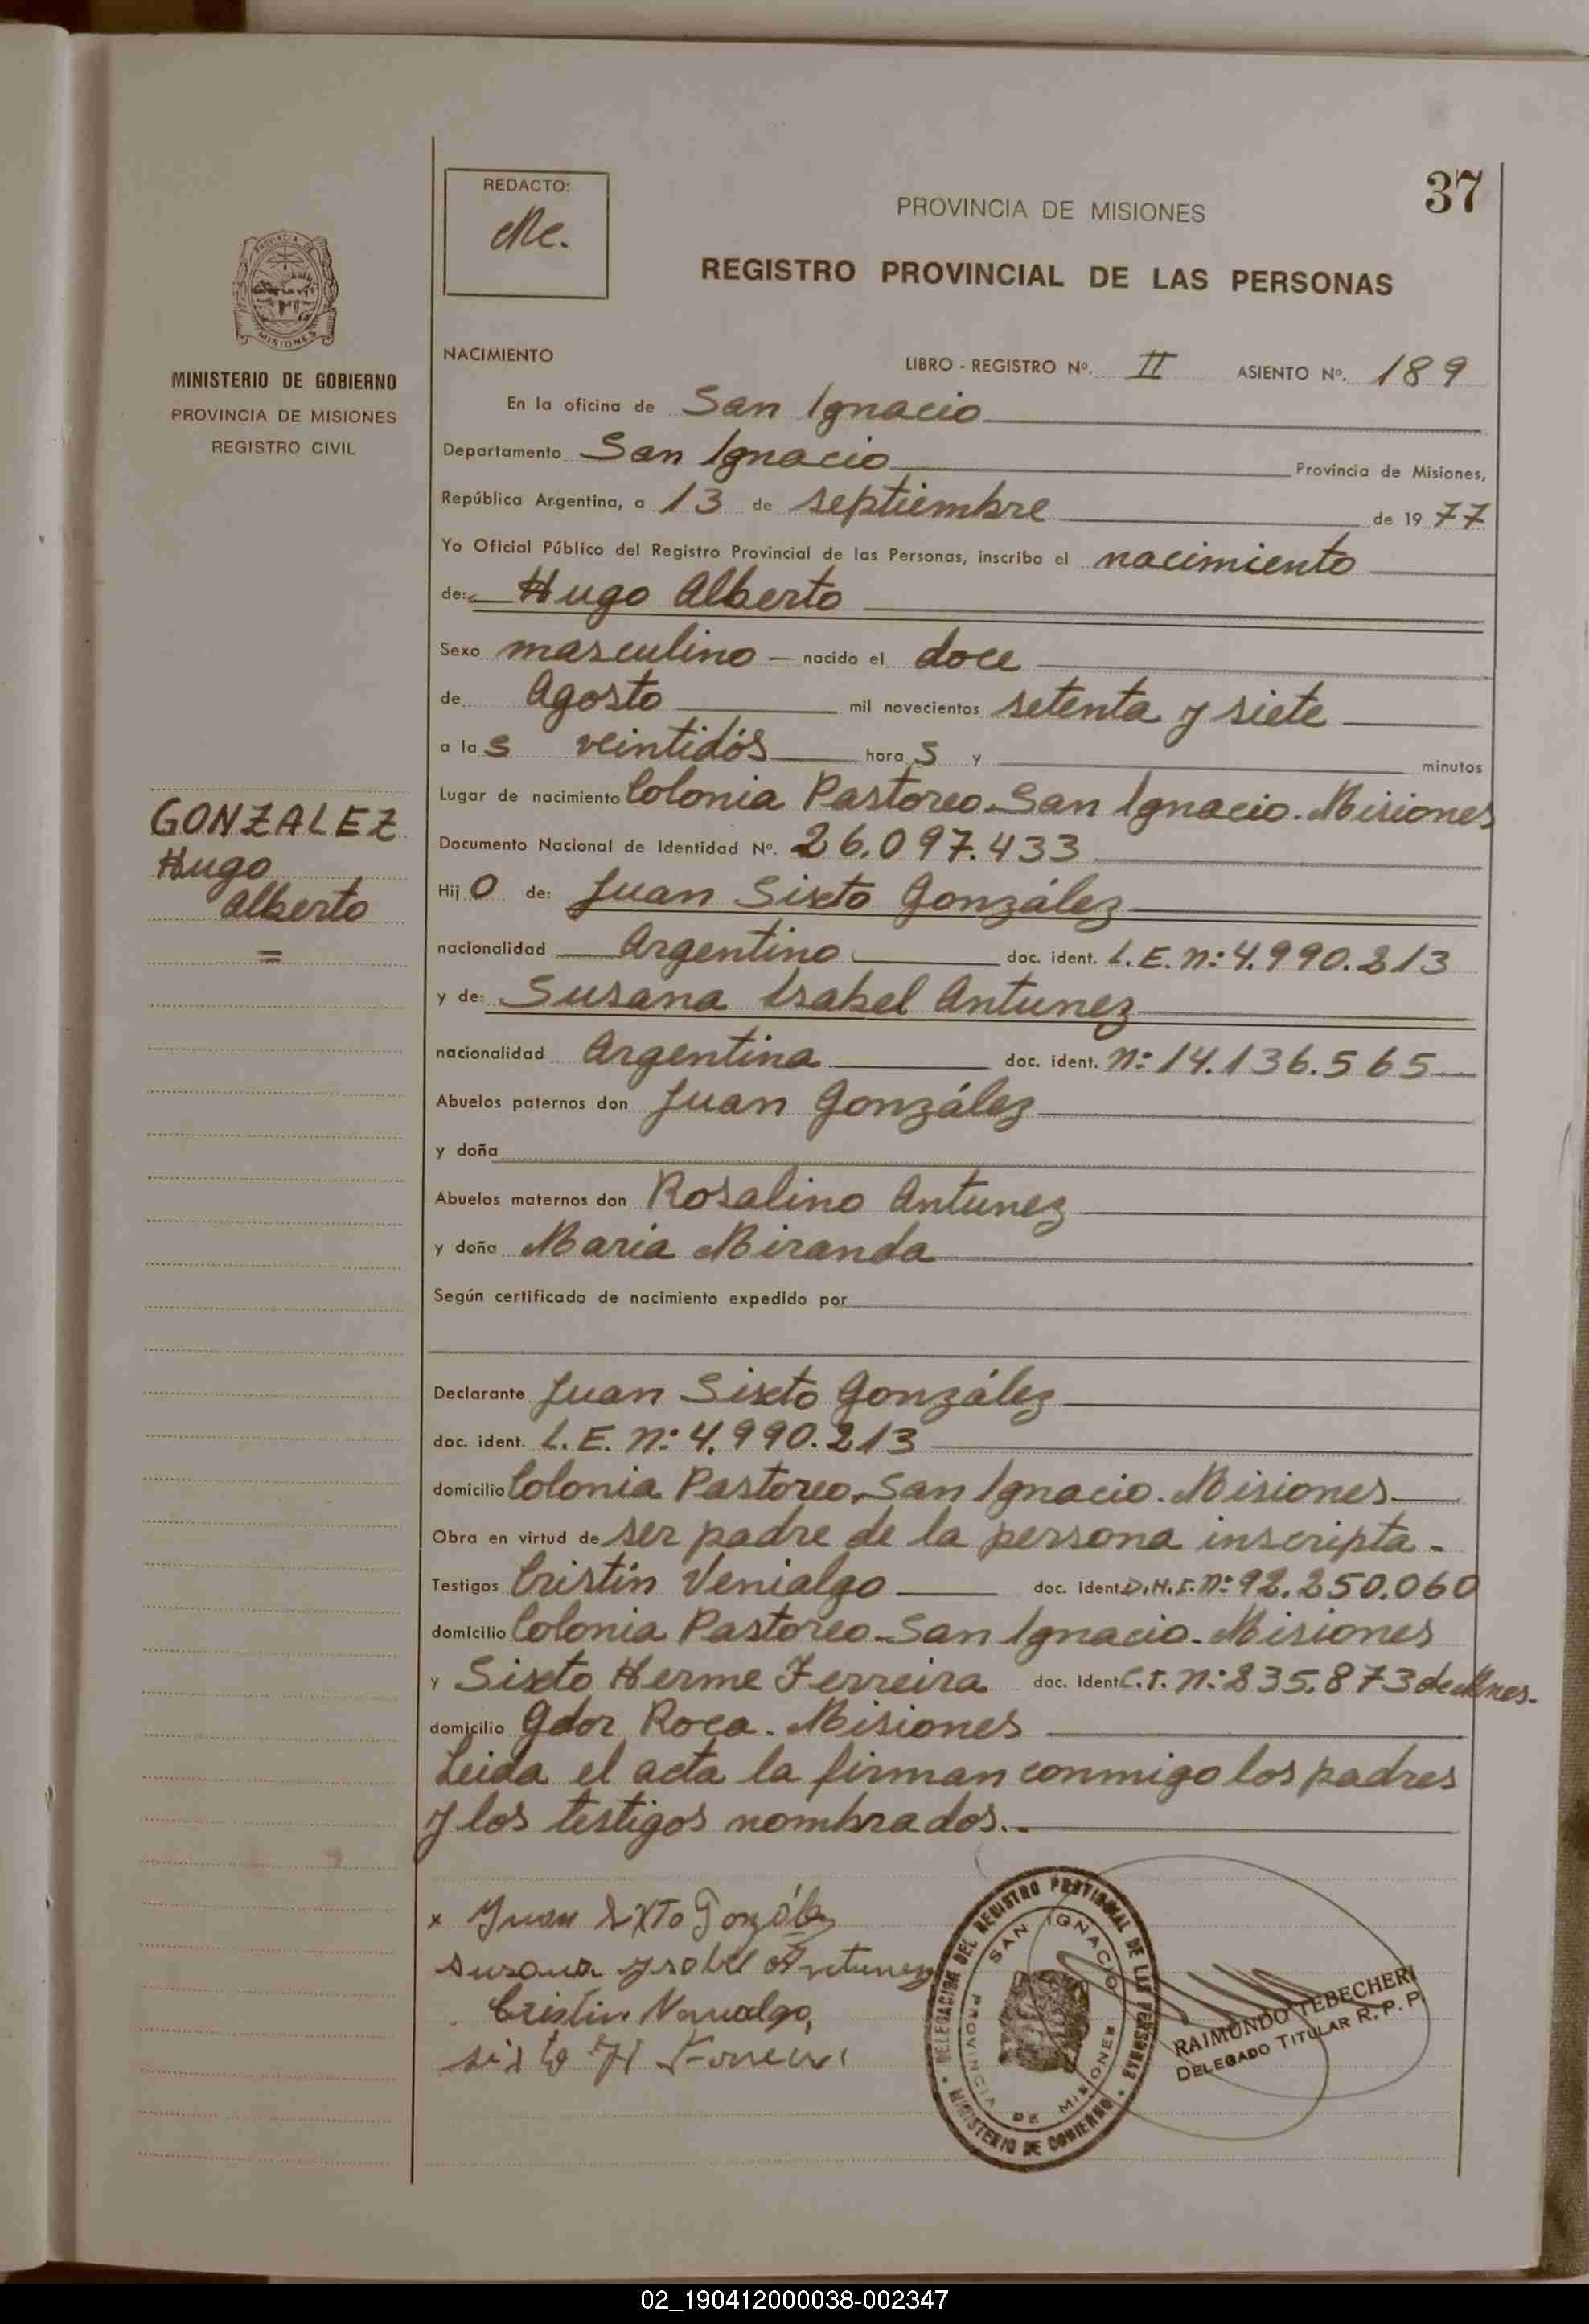 37
REDACTO:
Mc.
PROVINCIA DE MISIONES
REGISTRO PROVINCIAL DE LAS PERSONAS
PROVINCIA DE
MISIONES
MINISTERIO DE GOBIERNO
PROVINCIA DE MISIONES
REGISTRO CIVIL
GONZALEZ
Hugo
Alberto
=
NACIMIENTO LIBRO - REGISTRO Nº. II ASIENTO Nº. 189
En la oficina de San Ignacio
Departamento San Ignacio Provincia de Misiones,
República Argentina, a 13 de septiembre de 1977
Yo Oficial Público del Registro Provincial de las Personas, inscribo el nacimiento
de: Hugo Alberto
Sexo masculino — nacido el doce
de Agosto mil novecientos setenta y siete
a las veintidós horas y minutos
Lugar de nacimiento Colonia Pastoreo. San Ignacio. Misiones
Documento Nacional de Identidad Nº. 26.097.433
Hijo de: Juan Sixto González
nacionalidad Argentino doc. ident. L.E. n: 4.990.213
y de: Susana Isabel Antunez
nacionalidad Argentina doc. ident. n: 14.136.565
Abuelos paternos don Juan González
y doña
Abuelos maternos don Rosalino Antunez
y doña Maria Miranda
Según certificado de nacimiento expedido por
Declarante Juan Sixto González
doc. ident. L.E. n: 4.990.213
domicilio Colonia Pastoreo. San Ignacio. Misiones
Obra en virtud de ser padre de la persona inscripta.
Testigos Cristin Venialgo doc. Ident. D.N.I. nº 92.250.060
domicilio Colonia Pastoreo. San Ignacio. Misiones
y Sixto Herme Ferreira doc. Ident. C.I. n: 235.873 de Mnes.
domicilio Gdor Roca. Misiones
Leida el acta la firman conmigo los padres
y los testigos nombrados..
x Juan Sixto González
Susana Ysabel Antunez
Cristin Venialgo
Sixto H Ferreira
DELEGACION DEL REGISTRO PROVINCIAL DE LAS PERSONAS
SAN IGNACIO
PROVINCIA DE MISIONES
MINISTERIO DE GOBIERNO
RAIMUNDO TEBECHERI
DELEGADO TITULAR R.P.P.
02_190412000038-002347